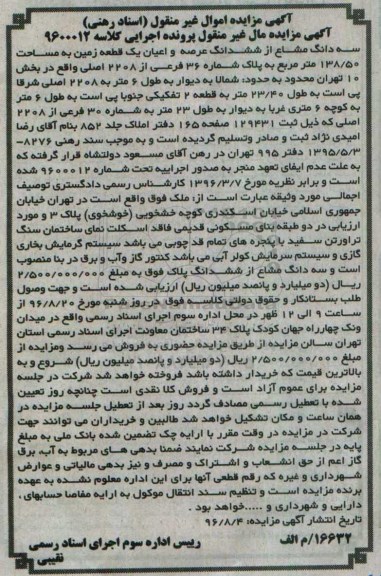 آگهی مزایده اموال غیر منقول (اسناد رهنی)
آگهی مزایده مال غیر منقول پرونده اجرایی کلاسه ۹۶۰۰۰۱۲
سه دانگ مشاع از ششدانگ عرصه و اعیان یک قطعه زمین به مساحت
۱۳۸/۵۰ متر مربع به پلاک شماره ۳۶ فرعی از ۲۲۰۸ اصلی واقع در بخش
۱۰ تهران محدود به حدود: شمالا به دیوار به طول ۶ متر به ۲۲۰۸ اصلی شرقا
پی است به طول ۲۳/۴۰ متر به قطعه ۲ تفکیکی جنوبا پی است به طول ۶ متر
به کوچه ۶ متری غربا به دیوار به طول ۲۳ متر به شماره ۳۰ فرعی از ۲۲۰۸
اصلی که ذیل ثبت ۱۲۹۴۳۱ صفحه ۱۶۵ دفتر املاک جلد ۸۵۲ بنام آقای رضا
امیدی نژاد ثبت و صادر وتسلیم گردیده است و به موجب سند رهنی ۸۲۷۶-
۱۳۹۵/۵/۳ دفتر ۹۹۵ تهران در رهن آقای مسعود دولتشاه قرار گرفته که
به علت عدم ایفای تعهد منجر به صدور اجراییه تحت شماره ۹۶۰۰۰۱۲ شده
است و برابر نظریه مورخ ۱۳۹۶/۳/۷ کارشناس رسمی دادگستری توصیف
اجمالی مورد وثیقه عبارت است از: ملک فوق واقع است در تهران خیابان
جمهوری اسلامی خیابان اسکندری کوچه خشخویی (خوشخوی) پلاک ۳ و مورد
ارزیابی در دو طبقه بنای مسکونی قدیمی فاقد اسکلت نمای ساختمان سنگ
تراورتن سفید با پنجره های تمام قد چوبی می باشد سیستم گرمایش بخاری
گازی و سیستم سرمایش کولر آبی می باشد کنتور گاز وآب و برق در بنا منصوب
است و سه دانگ مشاع از ششدانگ پلاک فوق به مبلغ ۲/۵۰۰/۰۰۰/۰۰۰
ریال (دو میلیارد و پانصد میلیون ریال) ارزیابی شده است و جهت وصول
طلب بستانکار و حقوق دولتی کلاسه فوق در روز شنبه مورخ ۹۶/۸/۲۰ از
ساعت ۹ الی ۱۲ ظهر در محل اداره سوم اجرای اسناد رسمی واقع در میدان
ونک چهارراه جهان کودک پلاک ۳۴ ساختمان معاونت اجرای اسناد رسمی استان
تهران سالن مزایده از طریق مزایده حضوری به فروش می رسد ومزایده از
مبلغ ۲/۵۰۰/۰۰۰/۰۰۰ ریال (دو میلیارد و پانصد میلیون ریال) شروع و به
بالاترین قیمت که خریدار داشته باشد فروخته خواهد شد شرکت در جلسه
مزایده برای عموم آزاد است و فروش کلا نقدی است چنانچه روز تعیین
شده با تعطیل رسمی مصادف گردد روز بعد از تعطیل جلسه مزایده در
همان ساعت و مکان تشکیل خواهد شد طالبین و خریداران می توانند جهت
شرکت در مزایده در وقت مقرر با ارایه چک تضمین شده بانک ملی به مبلغ
پایه در جلسه مزایده شرکت نمایند ضمنا بدهی های مربوط به آب، برق
گاز اعم از حق انشعاب و اشتراک و مصرف و نیز بدهی مالیاتی و عوارض
شهرداری و غیره که رقم قطعی آنها برای این اداره معلوم نشده به عهده
برنده مزایده است و تنظیم سند انتقال موکول به ارایه مفاصا حسابهای ،
دارایی و شهرداری و .....خواهد بود .
تاریخ انتشار آگهی مزایده: ۹۶/۸/۴
۱۶۶۳۲/م الف
رییس اداره سوم اجرای اسناد رسمی
نقیبی